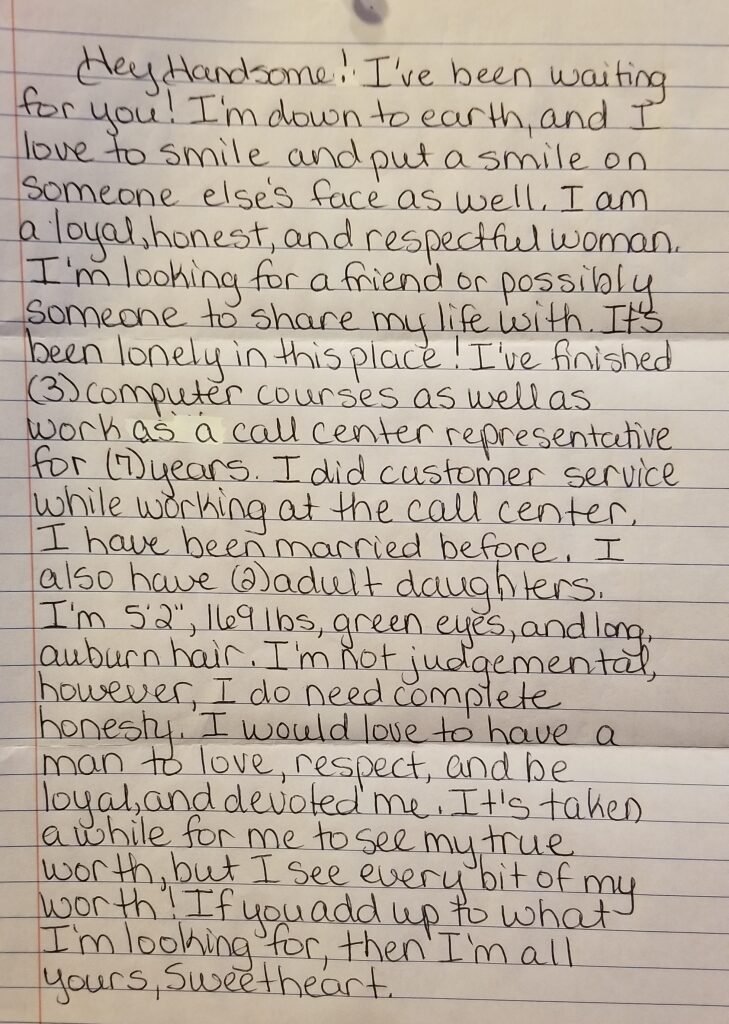 Hey Handsome! I've been waiting
for you! I'm down to earth, and I
love to smile and put a smile on
someone else's face as well. I am
a loyal, honest, and respectful woman.
I'm looking for a friend or possibly
someone to share my life with. It's
been lonely in this place! I've finished
(3) computer courses as well as
work as a call center representative
for (7) years. I did customer service
while working at the call center.
I have been married before. I
also have (2) adult daughters.
I'm 5'2", 169 lbs, green eyes, and long,
auburn hair. I'm not judgemental,
however, I do need complete
honesty. I would love to have a
man to love, respect, and be
loyal, and devoted me. It's taken
a while for me to see my true
worth, but I see every bit of my
worth! If you add up to what
I'm looking for, then I'm all
yours, Sweetheart.